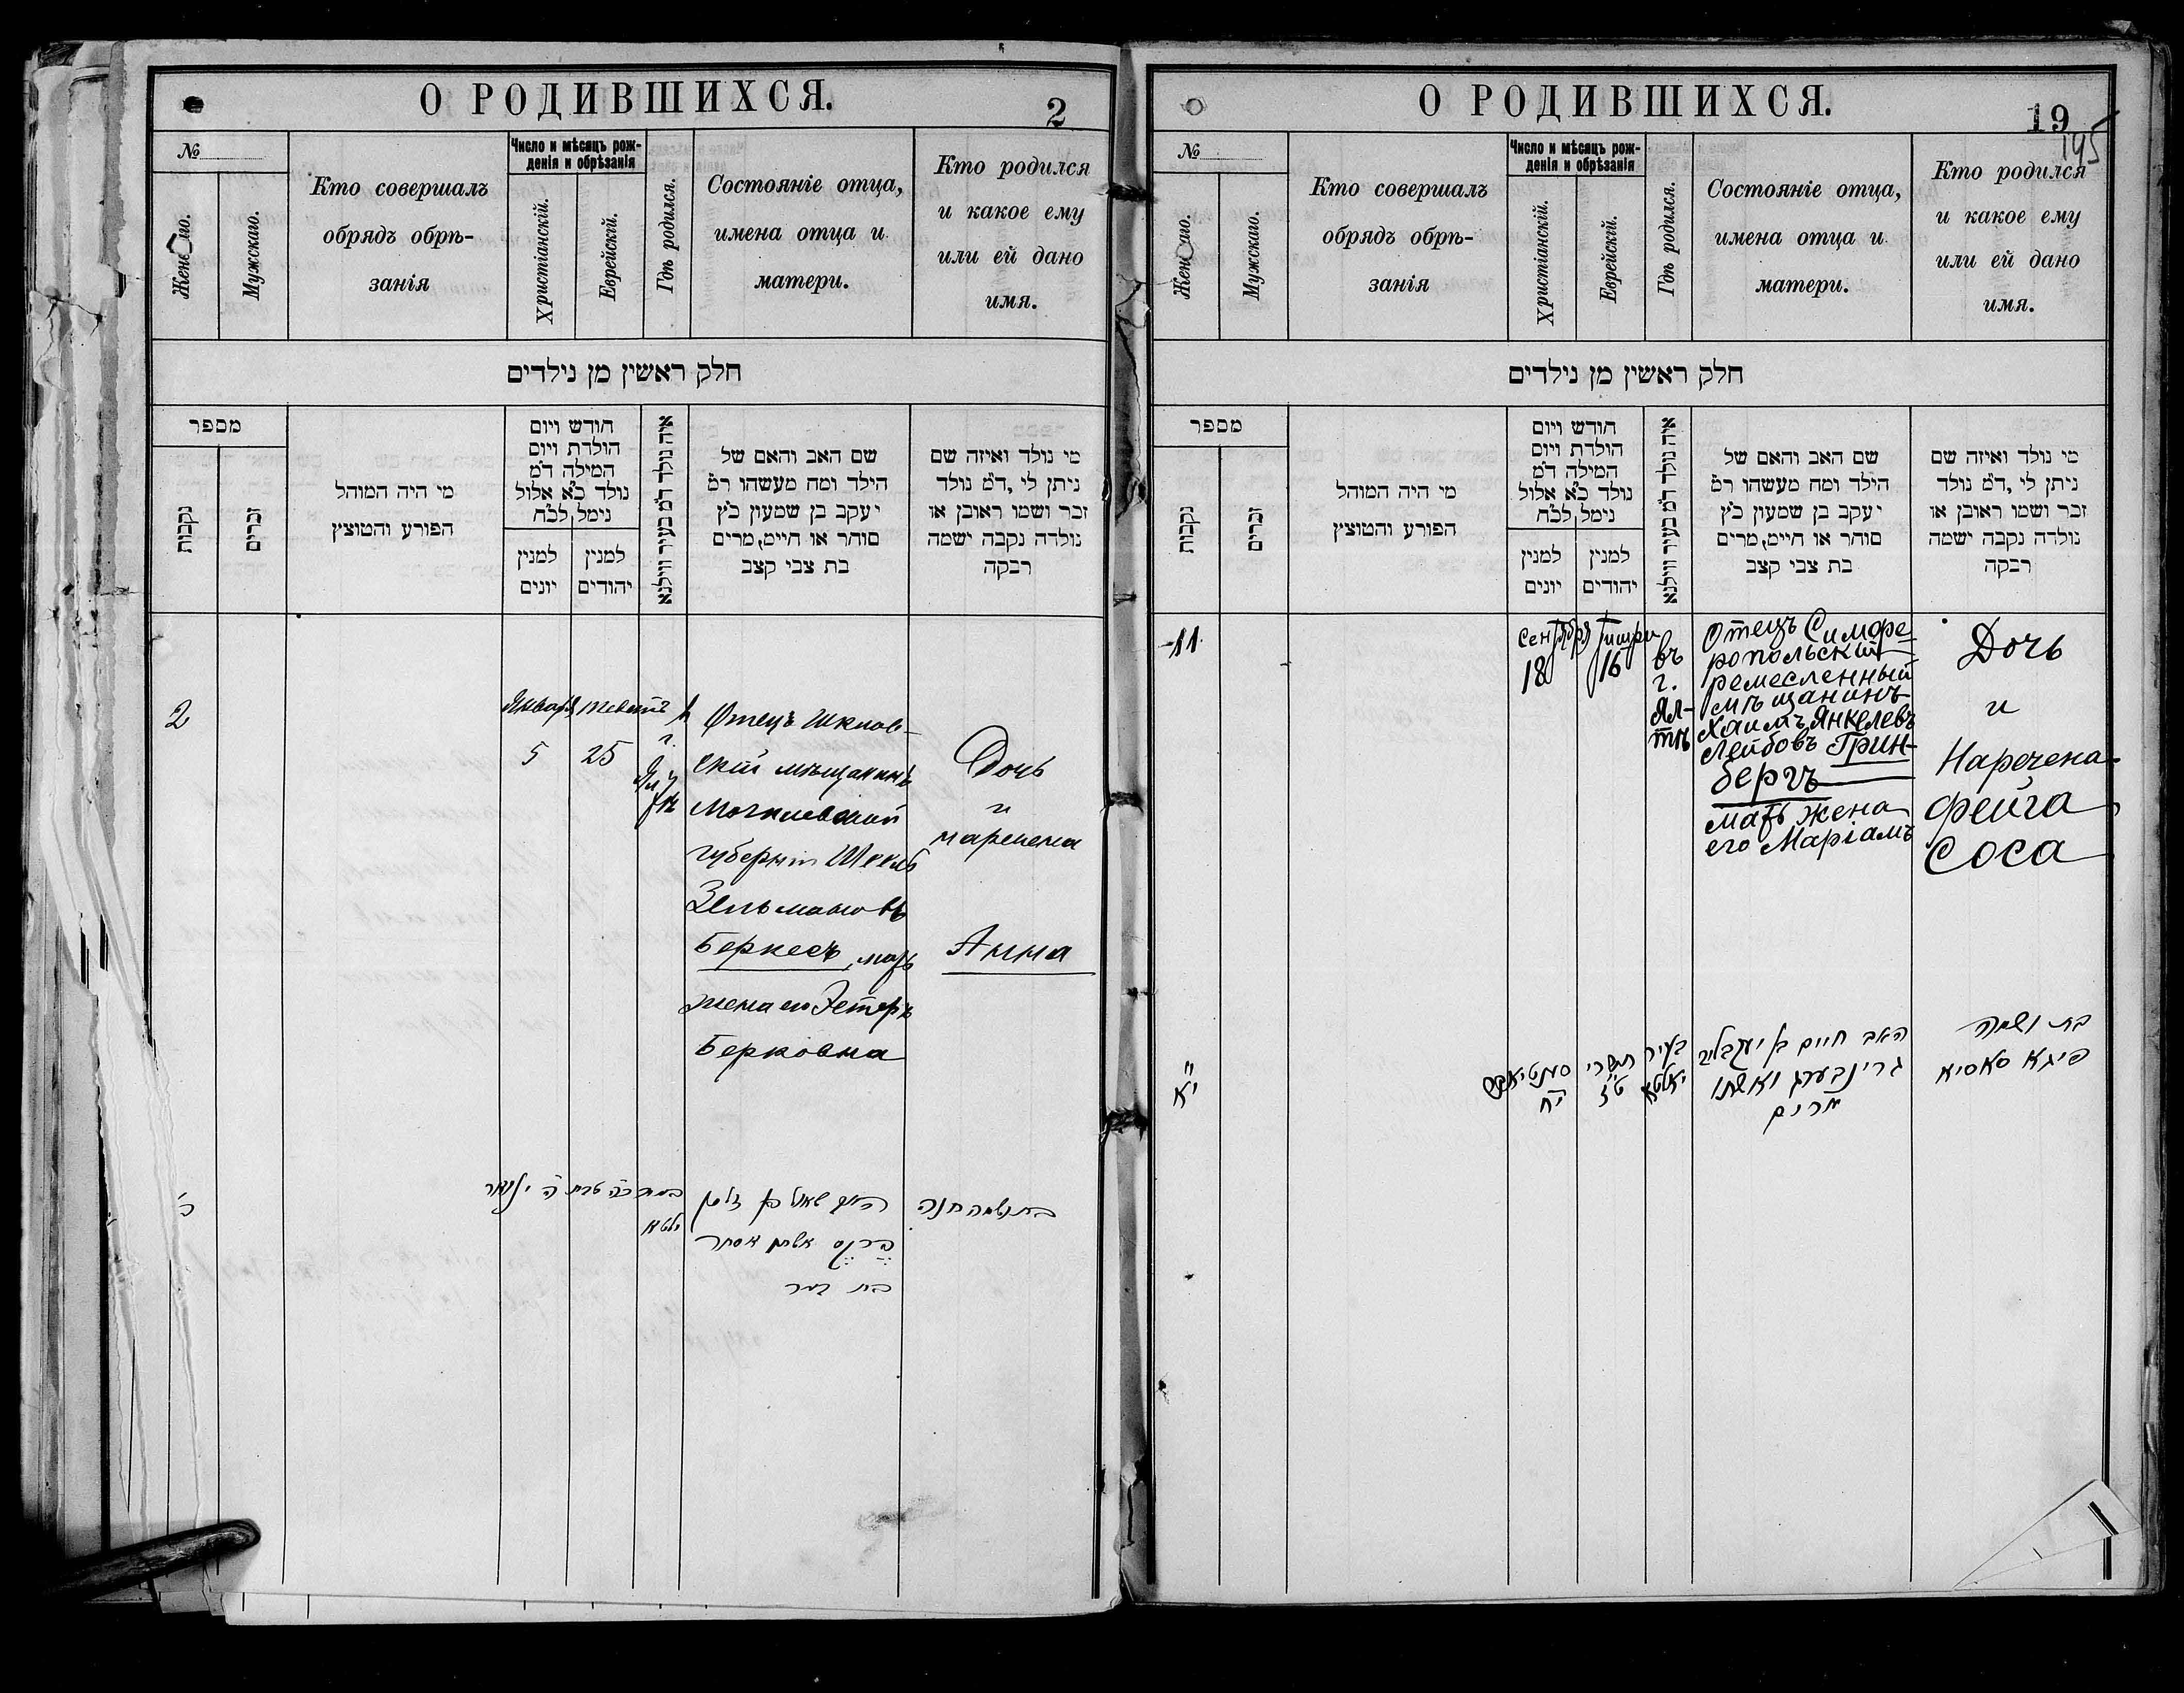 О РОДИВШИХСЯ.
2
№
Женскаго.
Мужскаго.
Кто совершалъ
обрядъ обрѣ-
занія
Число и мѣсяцъ рож-
денія и обрѣзанія
Христіанскій.
Еврейскій.
Гдѣ родился.
Состояніе отца,
имена отца и
матери.
Кто родился
и какое ему
или ей дано
имя.
חלק ראשין מן נילדים
מספר
נקבות
זכרים
מי היה המוהל
הפורע והמוצץ
חודש ויום
הולדת ויום
המילה ד״מ
נולד כ״א אלול
נימל לכ״ח
למנין
יונים
למנין
יהודים
איה נולד ד״מ בעיר ווילנא
שם האב והאם של
הילד ומה מעשהו ד״מ
יעקב בן שמעון כ״ץ
סוהר או חיים, מרים
בת צבי קצב
מי נולד ואיזה שם
ניתן לי, ד״מ נולד
זכר ושמו ראובן או
נולדה נקבה ישמה
רבקה
2
Января
5
тевет
25
г.
Ял
тѣ
Отецъ Шклов-
скій мѣщанинъ
Могилевской
губерніи
Зельмановъ
Беркесъ, мать
жена его Эстеръ
Берковна
Дочь
и
наречена
Анна
ילטא
בת ושמה חנה
О РОДИВШИХСЯ.
19
145
№
Женскаго.
Мужскаго.
Кто совершалъ
обрядъ обрѣ-
занія
Число и мѣсяцъ рож-
денія и обрѣзанія
Христіанскій.
Еврейскій.
Гдѣ родился.
Состояніе отца,
имена отца и
матери.
Кто родился
и какое ему
или ей дано
имя.
חלק ראשין מן נילדים
מספר
נקבות
זכרים
מי היה המוהל
הפורע והמוצץ
חודש ויום
הולדת ויום
המילה ד״מ
נולד כ״א אלול
נימל לכ״ח
למנין
יונים
למנין
יהודים
איה נולד ד״מ בעיר ווילנא
שם האב והאם של
הילד ומה מעשהו ד״מ
יעקב בן שמעון כ״ץ
סוהר או חיים, מרים
בת צבי קצב
מי נולד ואיזה שם
ניתן לי, ד״מ נולד
זכר ושמו ראובן או
נולדה נקבה ישמה
רבקה
11
Сентября
18
Тишри
16
въ
г.
Ял-
тѣ
Отецъ Симфе-
ропольскій
ремесленный
мѣщанинъ
Хаимъ Янкелевъ
Лейбовъ Грин-
бергъ
мать жена
его Маріамъ
Дочь
и
Наречена
Фейга
Соса
י״א
י״ח
תשרי
ט״ז
בעיר
יאלטא
האב חיים בן
גרינבערג ואשתו
מרים
בת ושמה
פיגא סאסיא